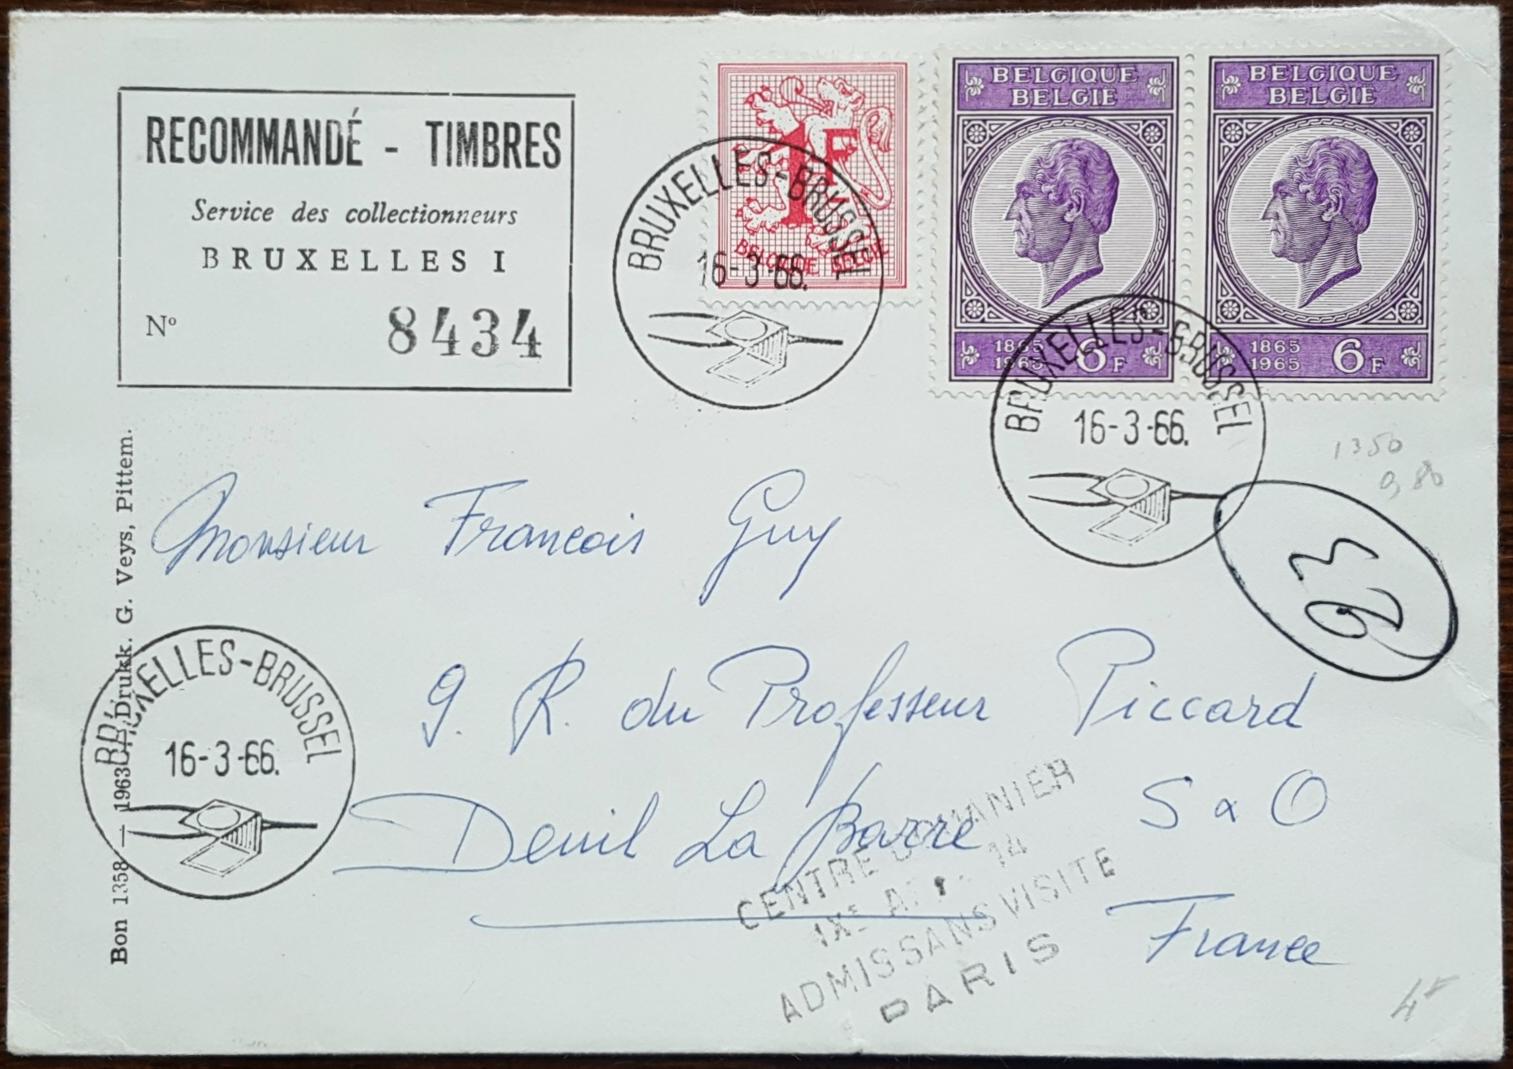 RECOMMANDÉ - TIMBRES
Service des collectionneurs
BRUXELLES I
Nº 8434
1F
BELGIQUE BELGIE
BELGIQUE
BELGIE
1865
1965
6F
BELGIQUE
BELGIE
1865
1965
6F
BRUXELLES-BRUSSEL
16-3-66.
BRUXELLES-BRUSSEL
16-3-66.
1350
0,80
23
Monsieur Francois Guy
9. R. du Professeur Piccard
Deuil La Barre S & O
France
BRUXELLES-BRUSSEL
16-3-66.
Bon 1358 — 1963 Drukk. G. Veys, Pittem.
CENTRE DOUANIER
IXE 14
ADMIS SANS VISITE
PARIS